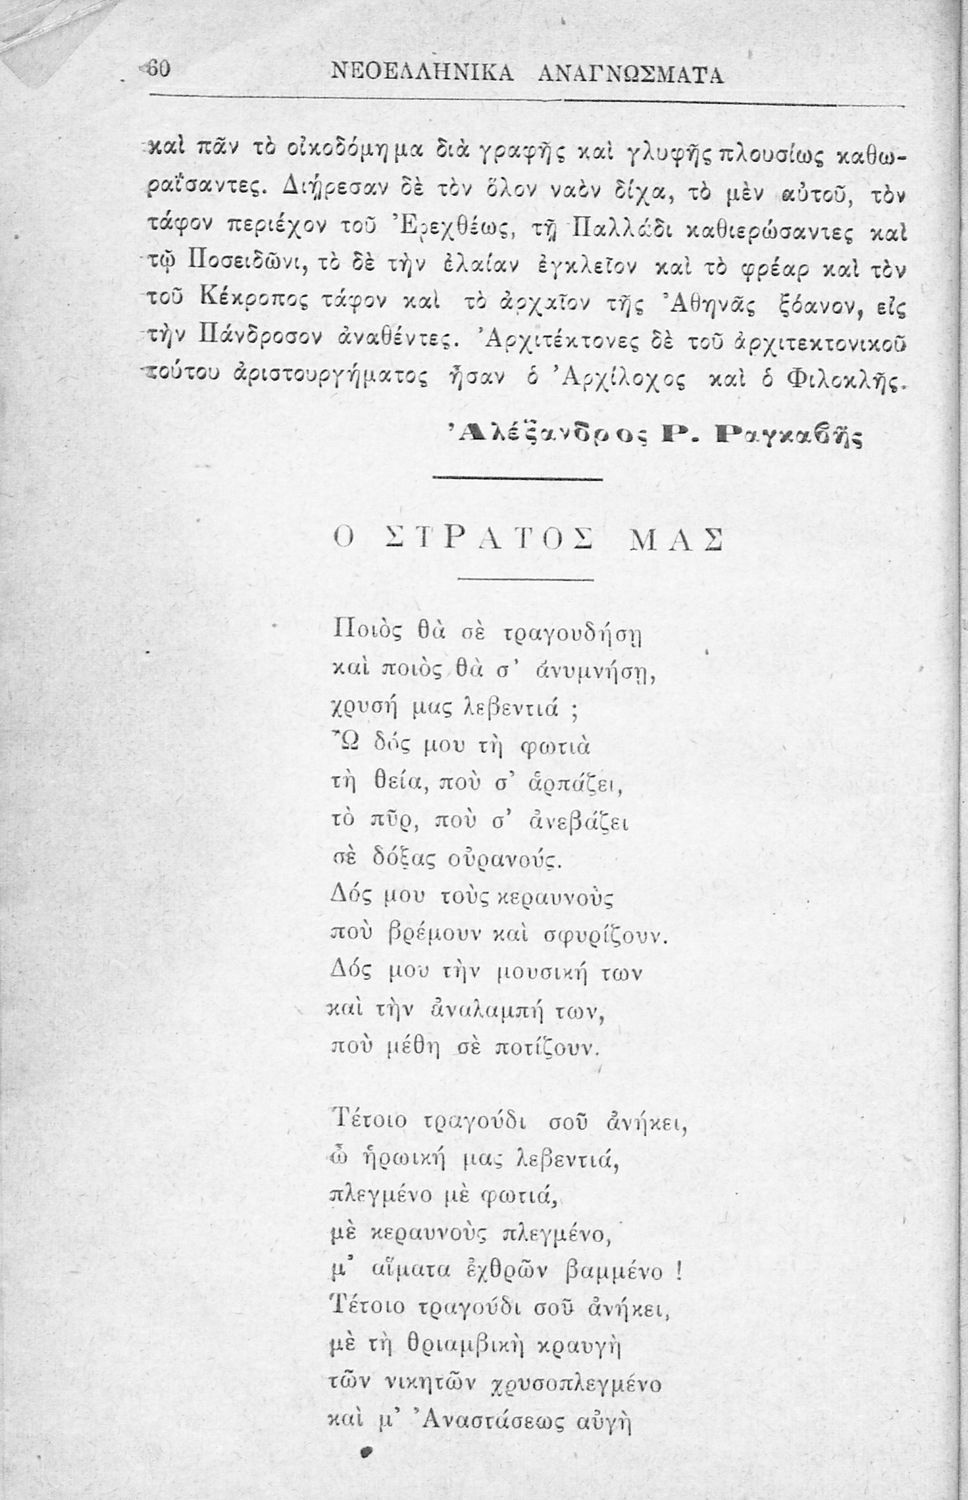 60 ΝΕΟΕΛΛΗΝΙΚΑ ΑΝΑΓΝΩΣΜΑΤΑ
καὶ πᾶν τὸ οἰκοδόμημα διὰ γραφῆς καὶ γλυφῆς πλουσίως καθω-
ραΐσαντες. Διῄρεσαν δὲ τὸν ὅλον ναὸν δίχα, τὸ μὲν αὐτοῦ, τὸν
τάφον περιέχον τοῦ Ἐρεχθέως, τῇ Παλλάδι καθιερώσαντες καὶ
τῷ Ποσειδῶνι, τὸ δὲ τὴν ἐλαίαν ἐγκλεῖον καὶ τὸ φρέαρ καὶ τὸν
τοῦ Κέκροπος τάφον καὶ τὸ ἀρχαῖον τῆς Ἀθηνᾶς ξόανον, εἰς
τὴν Πάνδροσον ἀναθέντες. Ἀρχιτέκτονες δὲ τοῦ ἀρχιτεκτονικοῦ
τούτου ἀριστουργήματος ἦσαν ὁ Ἀρχίλοχος καὶ ὁ Φιλοκλῆς.
Ἀλέξανδρος Ρ. Ραγκαβῆς
Ο ΣΤΡΑΤΟΣ ΜΑΣ
Ποιὸς θὰ σὲ τραγουδήσῃ
καὶ ποιὸς θὰ σ' ἀνυμνήσῃ,
χρυσή μας λεβεντιά ;
Ὢ δός μου τὴ φωτιὰ
τὴ θεία, ποὺ σ' ἁρπάζει,
τὸ πῦρ, ποὺ σ' ἀνεβάζει
σὲ δόξας οὐρανούς.
Δός μου τοὺς κεραυνοὺς
ποὺ βρέμουν καὶ σφυρίζουν.
Δός μου τὴν μουσική των
καὶ τὴν ἀναλαμπή των,
ποὺ μέθη σὲ ποτίζουν.
Τέτοιο τραγούδι σοῦ ἀνήκει,
ὦ ἡρωική μας λεβεντιά,
πλεγμένο μὲ φωτιά,
μὲ κεραυνοὺς πλεγμένο,
μ' αἵματα ἐχθρῶν βαμμένο !
Τέτοιο τραγούδι σοῦ ἀνήκει,
μὲ τὴ θριαμβικὴ κραυγὴ
τῶν νικητῶν χρυσοπλεγμένο
καὶ μ' Ἀναστάσεως αὐγὴ